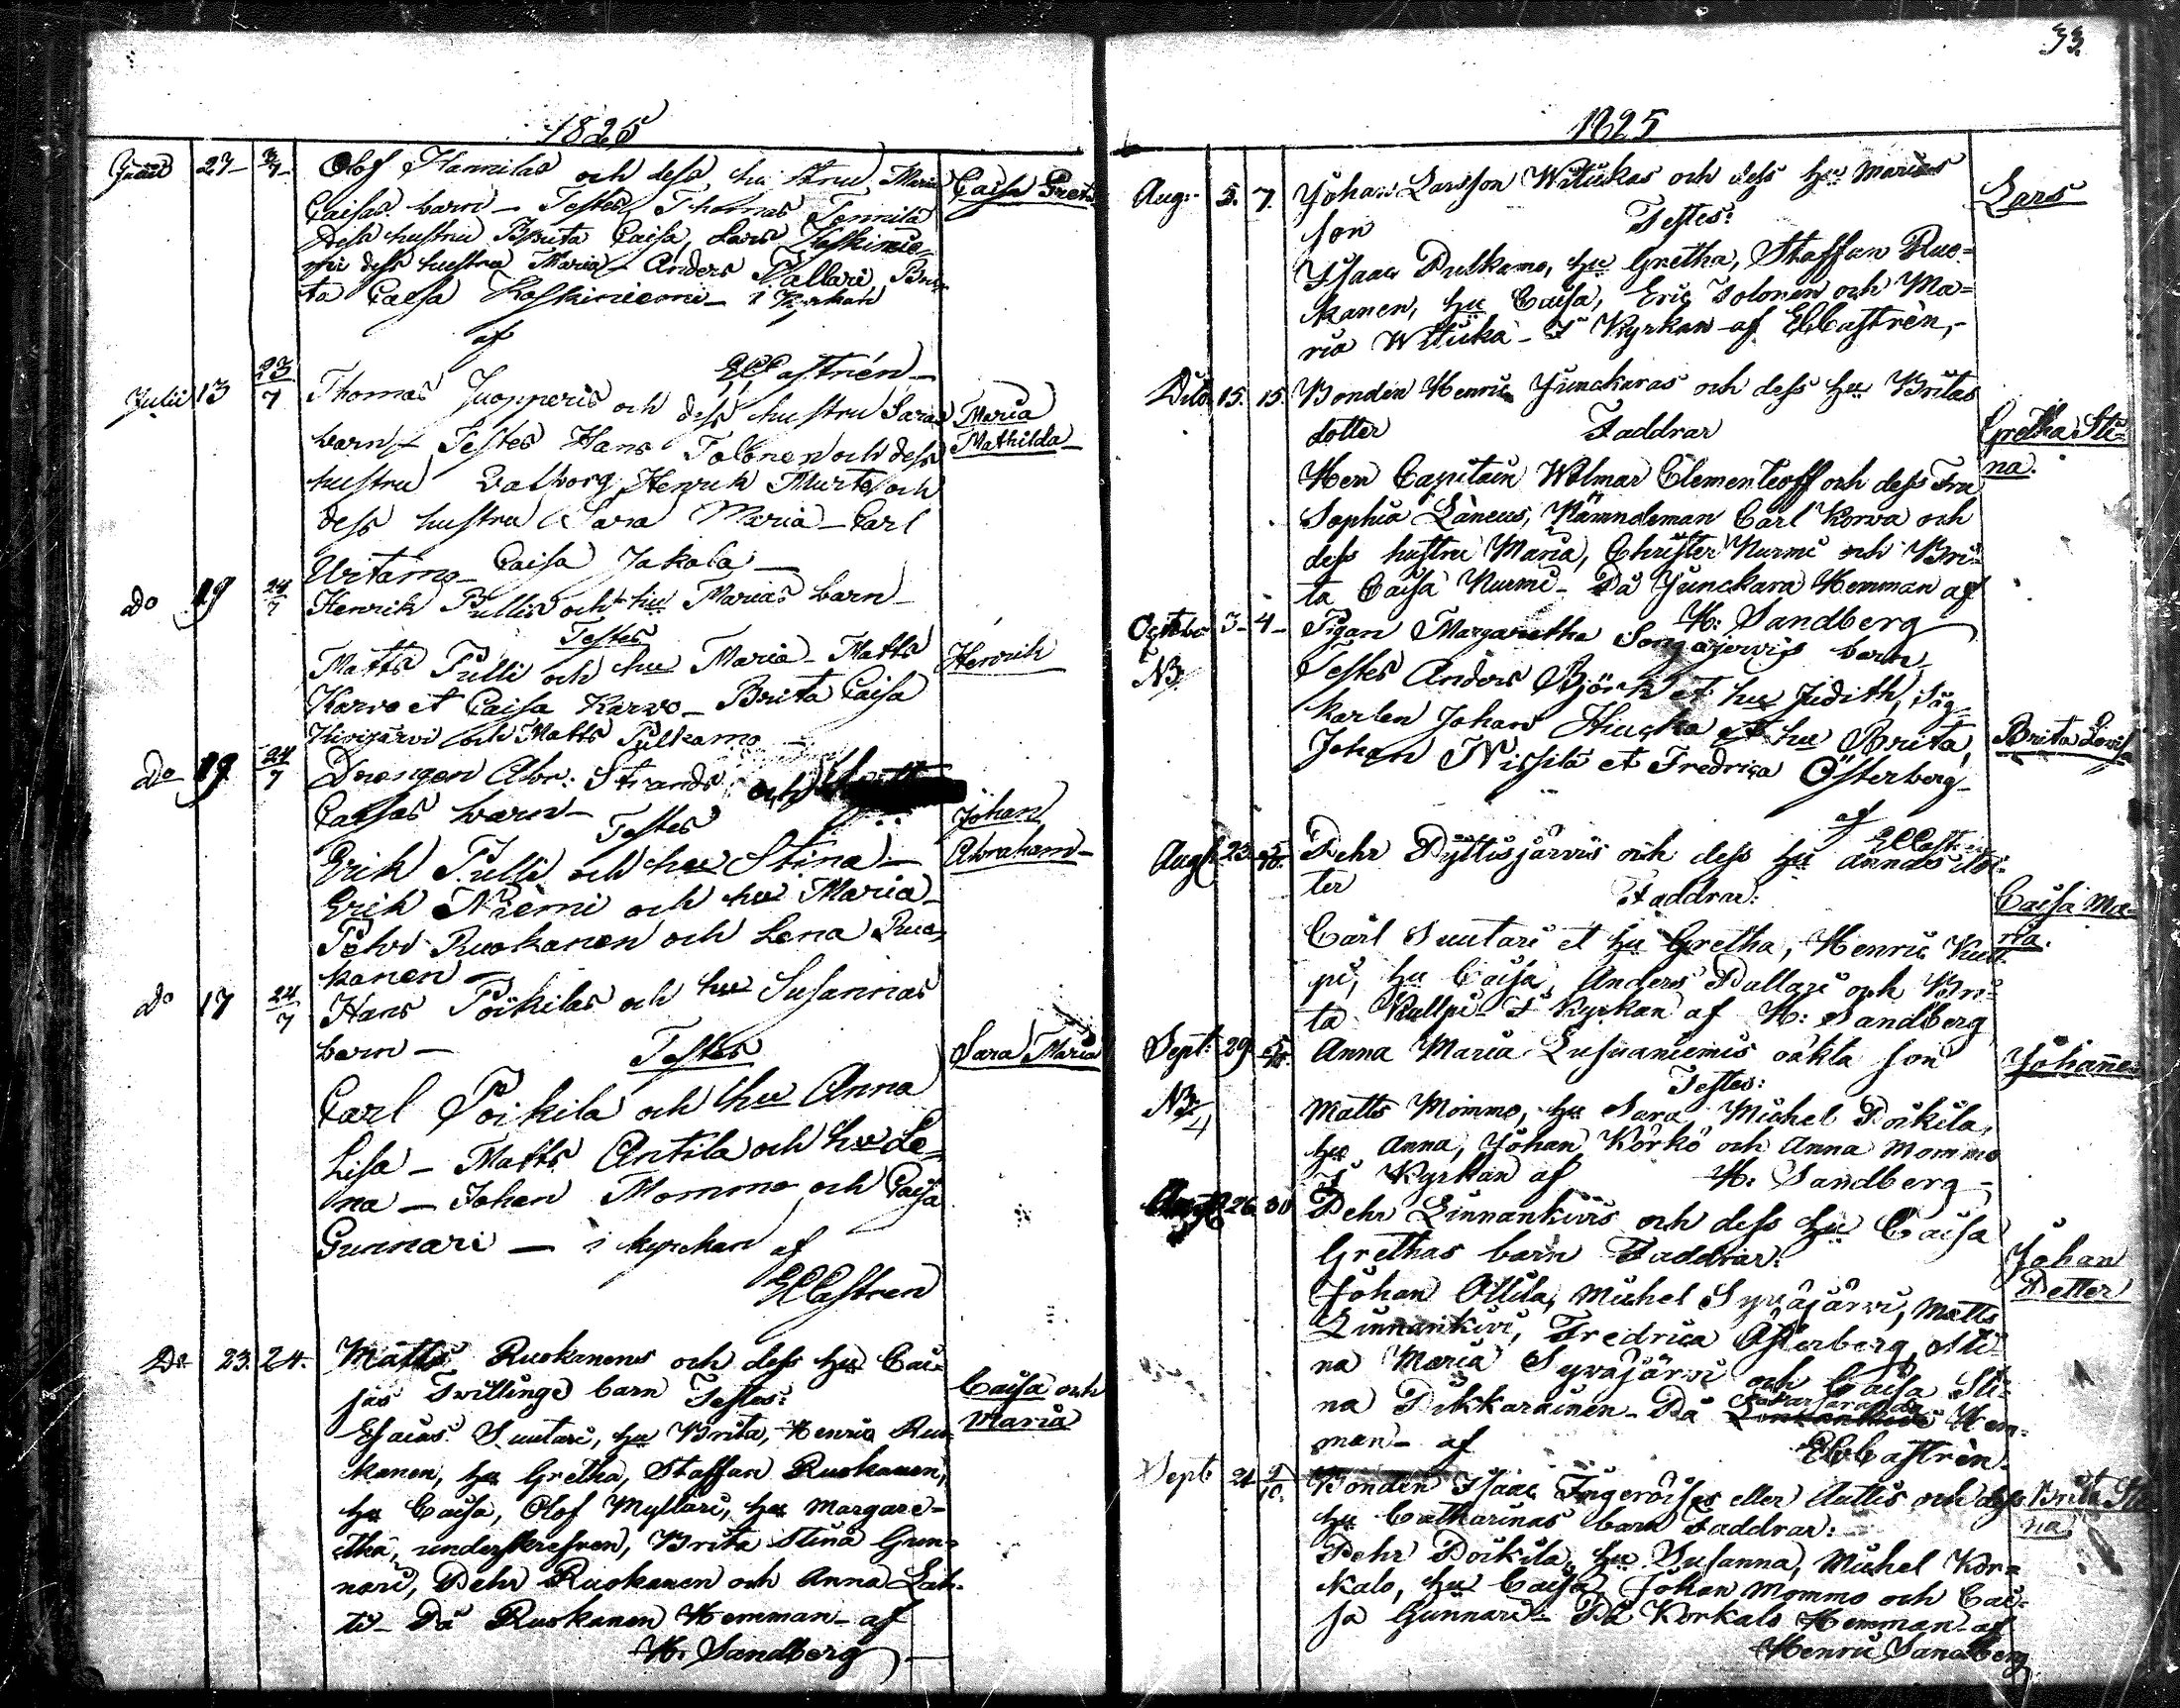 33.
1825
27 Olof Hannilas och dess hustru Maria Caisa Greta
Caisas barn - Testes Thomas Tennilä
dess hustru Brita Caisa, Lars Koskinie-
mi dess hustru Maria - Anders Pallari, Bri-
ta Caisa Koskiniemi - i Kyrkan
af
ECastrén -
Julii 13 23/7 Thomas Juopperis och dess hustru Saras Maria
barn - Testes Hans Tolonen och dess Mathilda -
hustru Valborg, Henrik Murto och
dess hustru Sara Maria - Carl
Urtamo - Caisa Jakola -
do 19 24/7 Henrik Pullis och hu Marias barn -
Testes
Matts Pulli och hu Maria - Matts Henrik
Karvo et Caisa Karvo - Brita Caisa
Hirvijärvi och Matts Pulkamo -
do 19 24/7 Drengen Abr: Strands och
Caisas barn - Testes Johan
Erik Pulli och hu Stina - Abraham -
Erik Niemi och hu Maria -
Pehr Ruokanen och Lena Ruo-
kanen -
do 17 24/7 Hans Poikilas och hu Susannas
barn - Testes Sara Maria
Carl Poikila och hu Anna
Lisa - Matts Antila och hu Le-
na - Johan Mommo och Caisa
Gunnari - i kyrckan af
ECastren
Do 23. 24. Matts Ruokanens och dess hu Cai-
sas Twillinge barn Testes: Caisa och
Esaias Suutari, hu Brita, Henric Ruo- Maria
kanen, hu Gretha, Staffan Ruokanen,
hu Caisa, Olof Myllari, hu Margare-
tha, underskrefven, Brita Stina Gun-
nari, Pehr Ruokanen och Anna Lah-
ti - På Ruokanen Hemman - af
H. Sandberg -
1825
Aug: 5. 7. Johan Larsson Wituikas och dess hu Marias Lars
son Testes:
Isaac Pulkamo, hu Gretha, Staffan Ruo-
kanen, hu Caisa, Eric Tolonen och Ma-
ria Wituika - I Kyrkan af ECastrèn, -
Dito 15. 15. Bonden Henric Junckaras och dess hu Britas
dotter Faddrar Gretha Sti-
na.
Herr Capitain Wolmar Clementeoff och dess Fru
Sophia Läneus, Nämndeman Carl Korva och
dess hustru Maria, Christer Nurmi och Bri-
ta Caisa Nurmi - På Junckara Hemman af
H: Sandberg
October 3 - 4 - Pigan Margaretha Songajervis barn -
NB. Testes Anders Björk et hu Judith, Såg-
karlen Johan Hiucka et hu Brita, Brita Lovisa
Johan Nissilä et Fredrica Österberg -
af
ECast
Aug 23. Pehr Pyttisjärvis och dess hu Annas dot-
ter Faddrar: Caisa Ma-
ria.
Carl Suutari et hu Gretha, Henric Kult-
pi, hu Caisa, Anders Pallari och Bri-
ta Kullpi - I Kyrkan af H: Sandberg
Sept: 29 Anna Maria Lusuaniemis oäkta son Johannes
NB. Testes:
Matts Mommo, hu Sara, Michel Poikila,
hu Anna, Johan Körkö och Anna Mommo
I Kyrkan af H: Sandberg -
26. 30 Pehr Linnankivis och dess hu Caisa
Grethas barn Faddrar: Johan
Johan Ollila, Michel Syväjärvi, Matts Petter
Linnankivi, Fredrica Österberg, Sti-
na Maria Syväjärvi och Caisa Sti-
na Pikkarainen - På Hem-
man - af ECastrèn.
Sept: 24 2/10. Bonden Isaac Ingeröises eller Auttis och dess Brita Sti-
hu Catharinas barn Faddrar: na
Pehr Poikila, hu Susanna, Michel Kor-
kalo, hu Caisa, Johan Mommo och Cai-
sa Gunnari - På Korkalo Hemman - af
Henric Sandberg